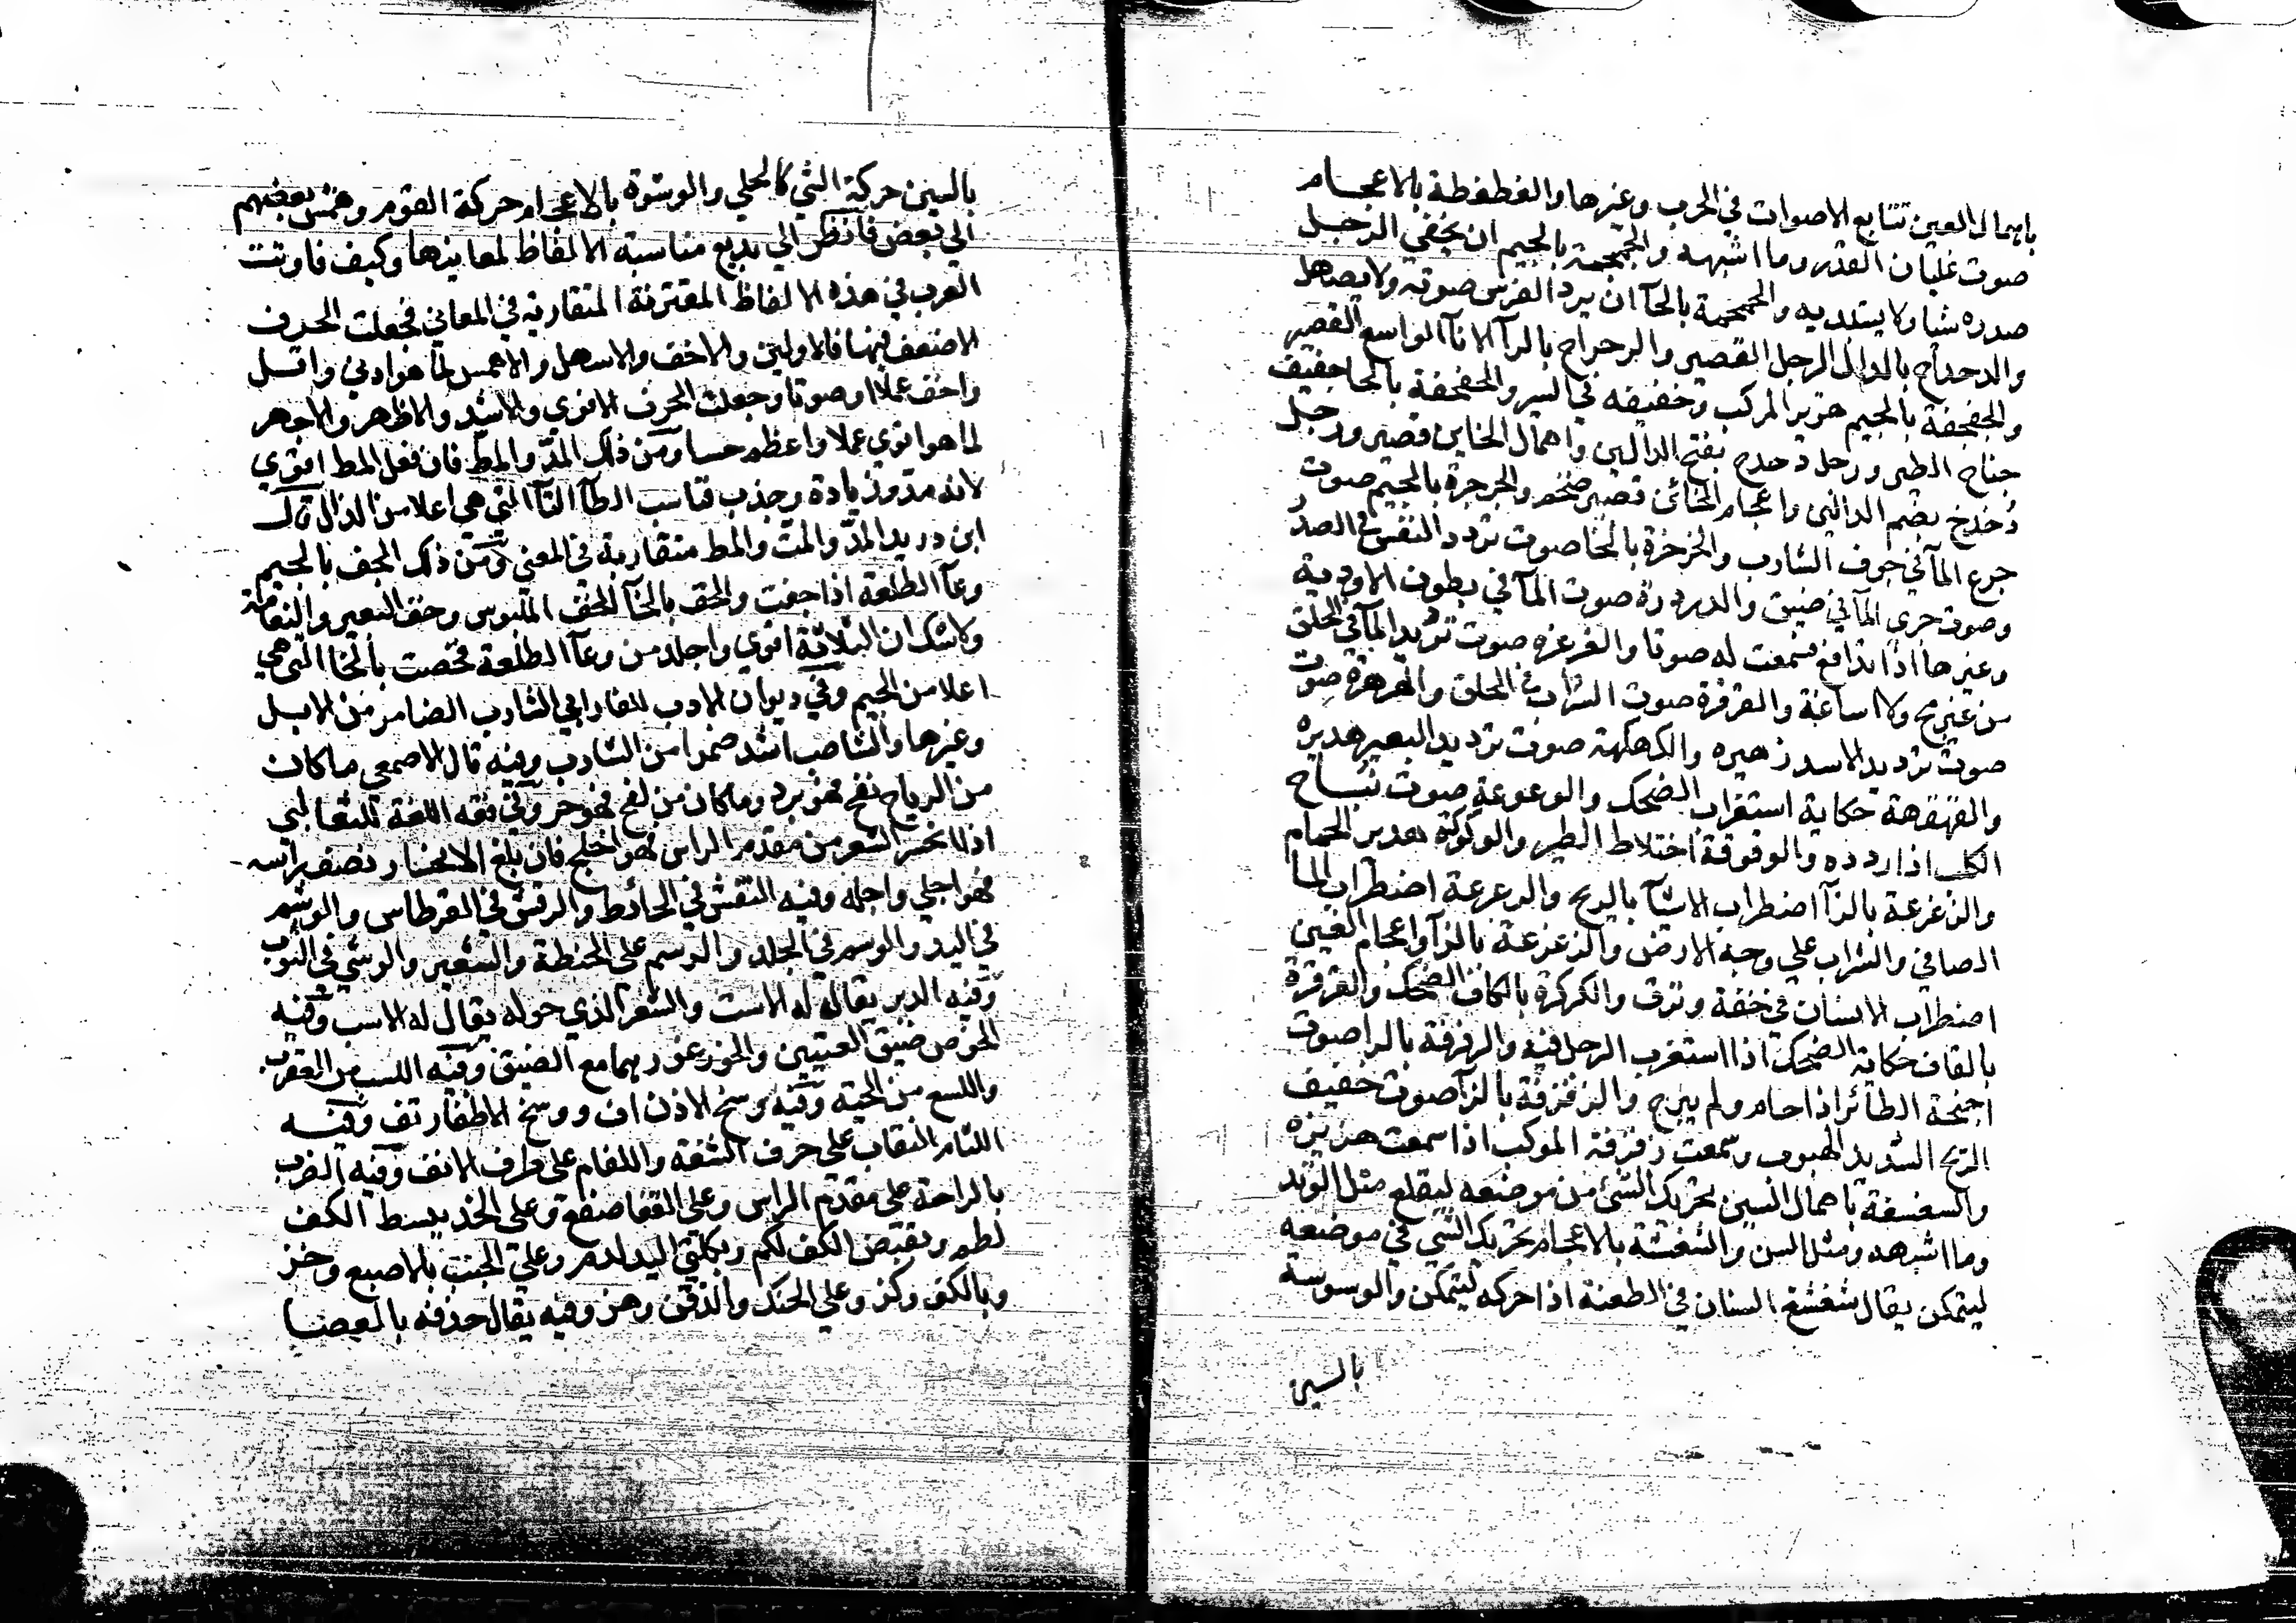 باهمال العين تتابع الاصوات في الحرب وغيرها والغطغطة بالاعجام
صوت غليان القدر وما اشبهه والجمجمة بالجيم ان يخفي الرجل
صدره شيا ولا يبديه والحمحمة بالحآ ان يردد الفرس صوته ولا يصهل
والدحداح بالدال الرجل القصير والرحراح بالرآ الانآ الواسع القصير
والجفجفة بالجيم هزيز المركب وحفيفه في السير والحفحفة بالحا حفيف
جناح الطير ورجل دحدح بفتح الدالين واهمال الحاين قصير ورجل
دُخدخ بضم الدالين واعجام الخائين قصير ضخم والجرجرة بالجيم صوت
جرع المآ في جوف الشارب والخرخرة بالخا صوت تردد النفس في الصدر
وصوت جري المآ في ضيق والدردرة صوت المآ في بطون الاودية
وغيرها اذا تدافع فسمعت له صوتا والغرغره صوت ترديد المآ في الحلق
من غير مج ولا اساغة والقرقرة صوت الشراب في الحلق والهرهرة صوت
صوت ترديد الاسد زهيره والكهكهة صوت ترديد البعير هديره
والقهقهة حكاية استغراب الضحك والوعوعة صوت نباح
الكلب اذا ردده والوقوقة اختلاط الطير والوكوكة هدير الحمام
والزعزعة بالزآ اضطراب الاشيآ بالريح والرعرعة اضطراب المآ
الصافي والشراب علي وجه الارض والزغزغة بالزآ واعجام الغين
اضطراب الانسان في خفة ونزق والكركرة بالكاف الضحك والقرقرة
بالقاف حكاية الضحك اذا استغرب الرجل فيه والرفرفة بالرا صوت
اجنحة الطائر اذا حام ولم يبرح والزفزفة بالزآ صوت حفيف
الريح الشديد الهبوب وسمعت زفزفة الموكب اذا سمعت هزيزه
والسغسغة باهمال السين تحريك الشئ من موضعه ليقلع مثل الوتد
وما اشبهه ومثل السن والشغشغة بالاعجام تحريك الشي في موضعه
ليتمكن يقال شغشغ السنان في الطعنة اذا حركه ليتمكن والوسوسة
بالسين
بالسين حركة الشي كالحلي والوشوة بالاعجام حركة القوم وهمس بعضهم
الي بعض فانظر الي بديع مناسبة الالفاظ لمعانيها وكيف فاوتت
العرب في هذه الالفاظ المقترنة المتقاربة في المعاني فجعلت الحرف
الاضعف فيها فالاولين والاخف والاسهل والاهمس لما هو ادني واقل
واخف عملا او صوتا وجعلت الحرف الاقوي والاشد والاظهر والاجهر
لما هو اقوي عملا واعظم حسا ومن ذلك المدّ والمط فان فعل المط اقوي
لانه مدّ وزيادة وجذب فناسب الطآ التآ التي هي اعلا من الدال قال
ابن دريد المدّ والمتّ والمط متقاربة في المعني ومن ذلك الجف بالجيم
وعآ الطلعة اذا جفت والخف بالخآ الخف الملبوس وخف البعير والنعامة
ولا شك ان الثلاثة اقوي واجلد من وعآ الطلعة فخصت بالخا التي هي
اعلا من الجيم وفي ديوان الادب للفارابي الشارب الضامر من الابل
وغيرها والشاصب اشد ضمرا من الشارب وفيه قال الاصمعي ما كان
من الرياح نفح فهو برد وما كان من لفح فهو حر وفي فقه اللغة للثعالبي
اذا انحسر الشعر من مقدم الراس فهو اجلح فان بلغ الانحسار نصف راسه
فهو اجلي واجله وفيه النقش في الحائط والرقش في القرطاس والوشم
في اليد والوسم في الجلد والرسم علي الحنطة والشعير والوشي في الثوب
وفيه الدبر يقال له الاست والشعر الذي حوله يقال له الاسب وفيه
الخوص ضيق العينين والخور غورهما مع الضيق وفيه اللسب من العقرب
واللسع من الحية وفيه وسخ الاذن اف ووسخ الاظفار تف وفيه
اللثام النقاب على حرف الشفة واللفام على طرف الانف وفيه الضرب
بالراحة على مقدم الراس وعلى القفا صفع وعلى الخد ببسط الكف
لطم وبقبض الكف لكم وبكلتي اليد لدم وعلي الجنب بالاصبع وخز
وبالكف وكز وعلي الحنك والذقن وهز وفيه يقال حذفه بالعصا